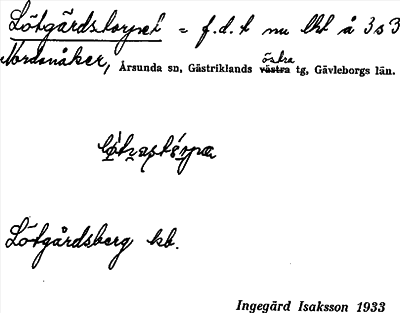 Lötgårdstorpet = f.d.t nu lht å 3s3
Nordanåker, Årsunda sn, Gästriklands västra östra tg, Gävleborgs län.
Lötgårdsberg kb.
Ingegärd Isaksson 1933